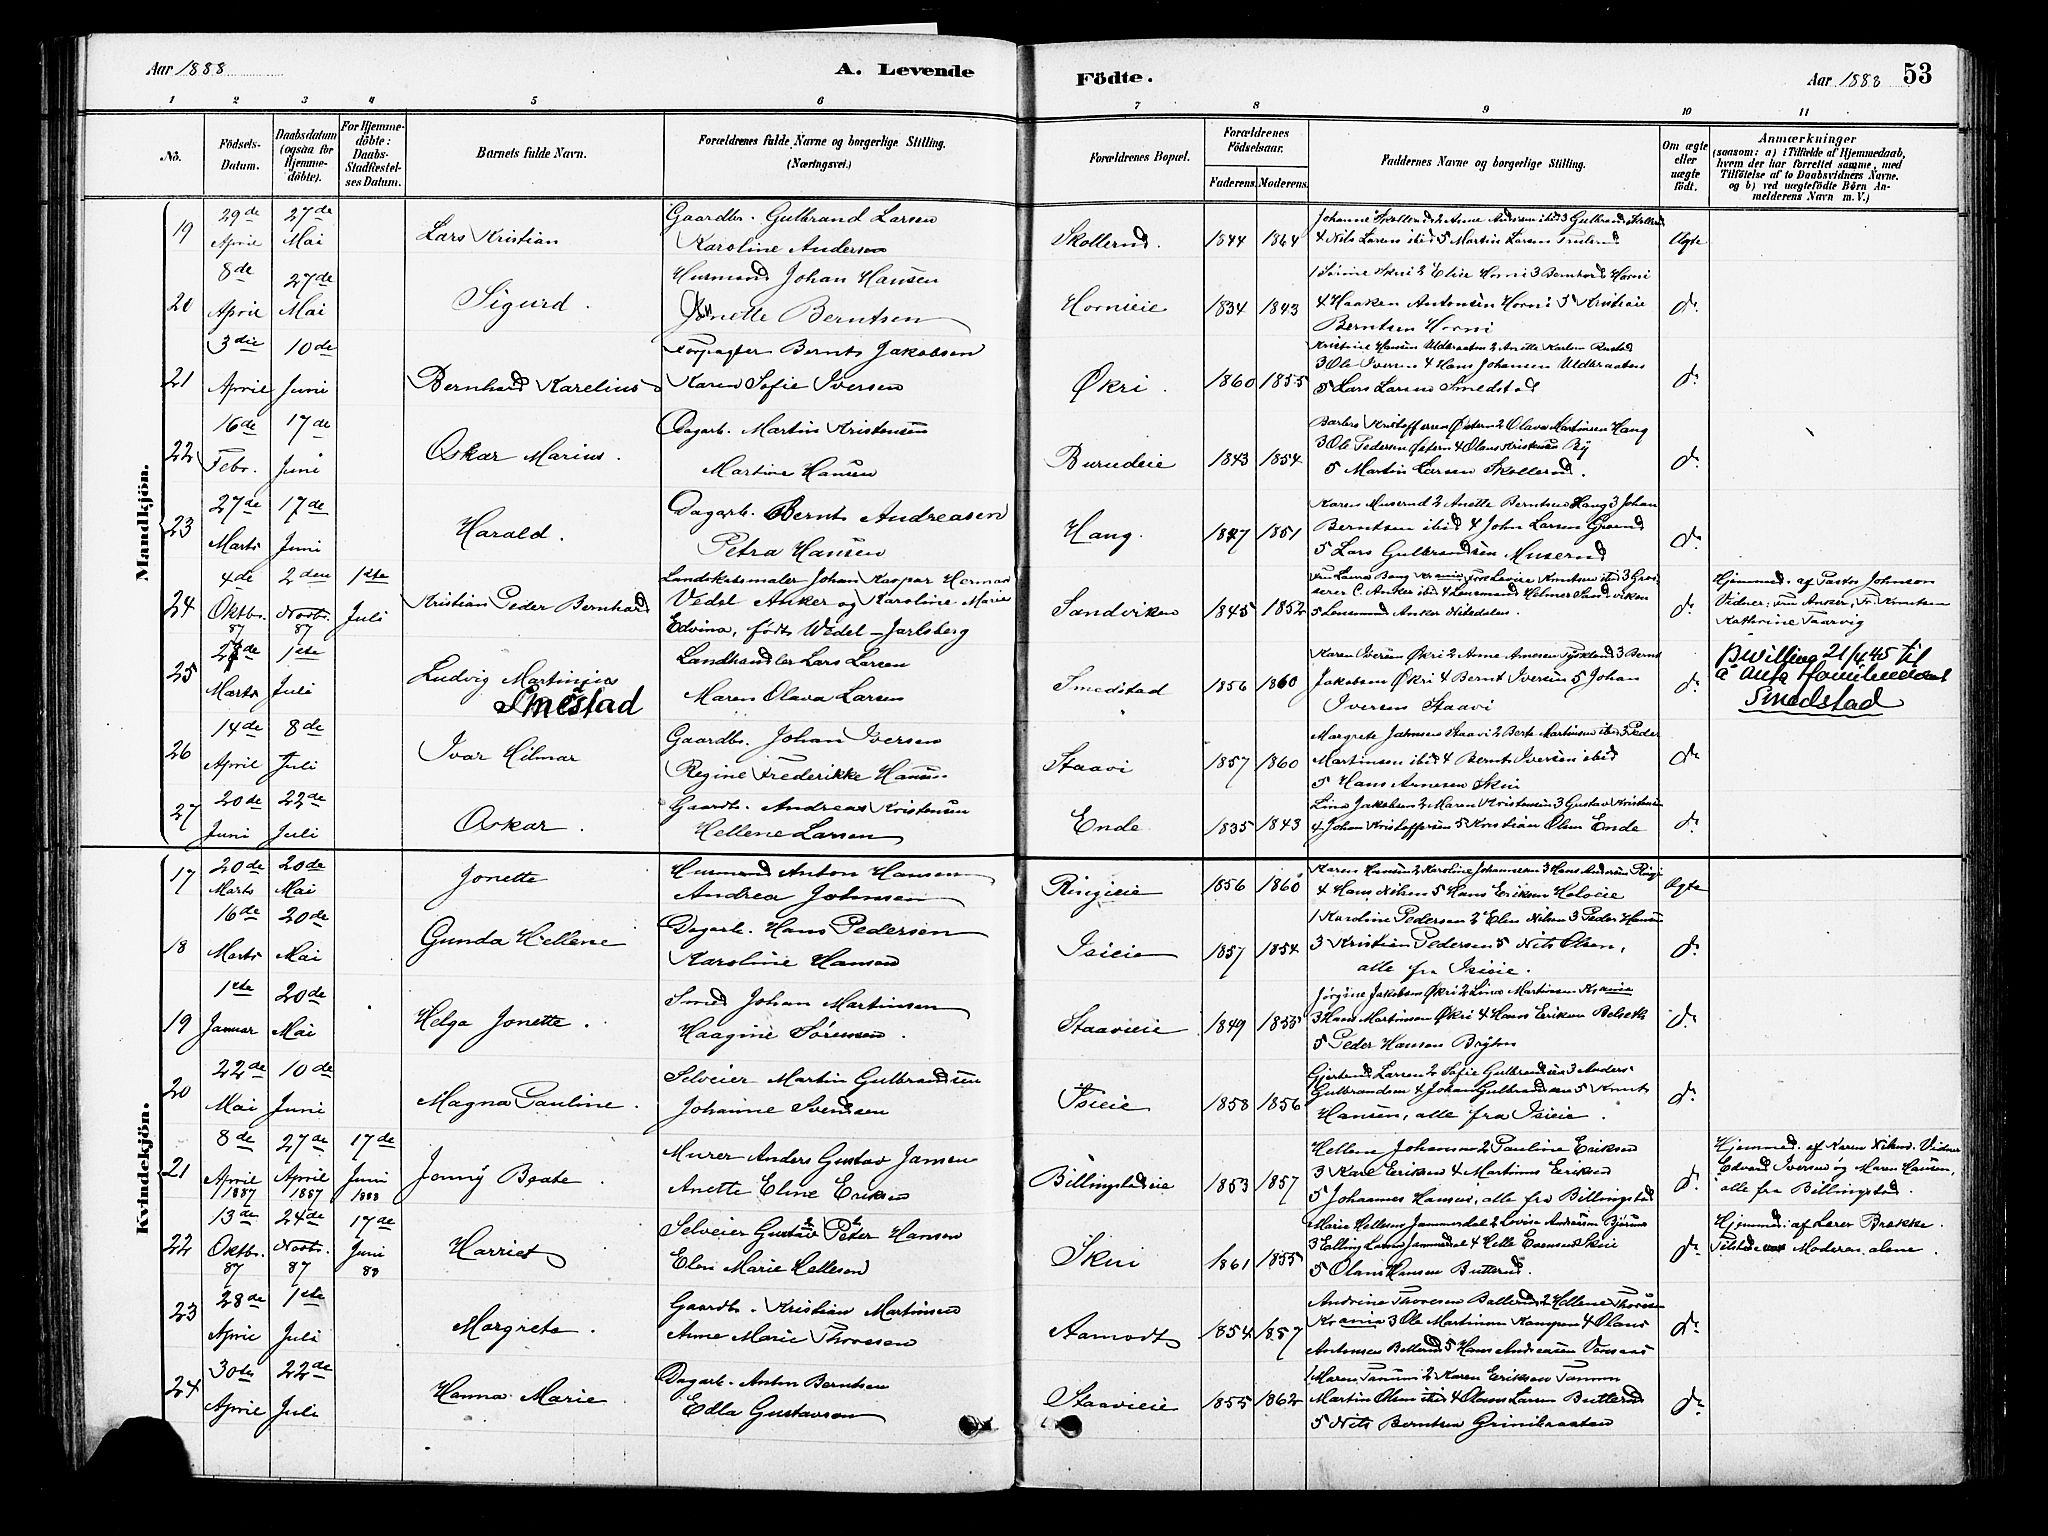 Aar 1888
A. Levende
Födte.
Aar 1888
53
1 2 3 4 5 6 7 8 9 10 11
No.
Födsels-Datum.
Daabsdatum (ogsaa for Hjemme-döbte).
For Hjemme-döbte: Daabs-Stadfæstel-ses Datum.
Barnets fulde Navn.
Forældrenes fulde Navne og borgerlige Stilling. (Næringsvei.)
Forældrenes Bopæl.
Forældrenes Födselsaar.
Faderens. Moderens.
Faddernes Navne og borgerlige Stilling.
Om ægte eller uægte födt.
Anmærkninger
(saasom: a) i Tilfælde af Hjemmedaab, hvem der har forrettet samme, med Tilföielse af to Daabsvidners Navne. og b) ved uægtefödte Börn An-melderens Navn m. V.)
Mandkjön.
19 29de April 27de Mai Lars Kristian Gaardbr. Gulbrand Larsen
Karoline Andersen Skollerud. 1844 1864 4 Nils Larsen ibid 5 Martin Larsen Ægte
20 8de April 27de Mai Sigurd. Husmand Johan Hansen
Jonette Berntsen Hornieie 1834 1843 1 Sörine Skui 2 Eline Horni 3 Bernhard Horni
4 Haaken Antonsen Horni 5 Kristiane
Berntsen Horni do
21 3die April 10de Juni Bernhard Karelius Forpagter Bernt Jakobsen
Karen Sofie Iversen Økri. 1860 1855
3 Ole Iversen 4 Hans Johansen Uldbraaten
5 Lars Larsen Smedstad do
22 16de Febr. 17de Juni Oskar Marius. Dagarb. Martin Kristensen
Martine Hansen Burudeie 1843 1854
3 Ole Pedersen Østern 4 Olaus Kristensen By
5 Martin Larsen Skollerud. do
23 27de Marts 17de Juni Harald. Dagarb. Bernt Andreasen
Petra Hansen Haug. 1847 1851 Karen Muserud 2 Anette Berntsen Haug 3 Johan
Berntsen ibid 4 John Larsen
5 Lars Gulbrandsen Muserud do
24 4de Oktbr. 87 2den Novbr. 87 1ste Juli Kristian Peder Bernhard Landskabsmaler Johan Kaspar Herman
Vedel Anker og Karoline Marie
Edvina, födt Wedel-Jarlsberg Sandviken 1845 1852
5 Lensmand Anker Nitedalen. do Hjemmed. af Pastor Johnson
Vidner: Fru Anker, Fr. Knutsen
Kathrine Taarvig
25 Marts 1ste Juli Ludvig Martinius
Smestad Landhandler Lars Larsen
Maren Olava Larsen Smedstad 1856 1860 Karen Iversen Økri 2 Anne Arnesen Tyskland 3 Bernt
Jakobsen Økri 4 Bernt Iversen 5 Johan
Iversen Staavi do Bevilling 21/4 45 til
å anta familienavnet
Smedstad
26 14de April 8de Juli Ivar Hilmar Gaardbr. Johan Iversen
Regine Frederikke Hansen Staavi 1857 1860 Margrete Jahnsen Staavi 2 Berte Martinsen ibid 3 Peder
Martinsen ibid 4 Bernt Iversen ibid
5 Hans Arnesen Skui do
27 20de Juni 22de Juli Oskar. Gaardb. Andreas Kristensen
Hellene Larsen Ende 1835 1843 Lina Jakobsen 2 Maren Kristensen 3 Gustav Kristensen
4 Johan Kristoffersen 5 Kristian Olsen Ende do
Kvindekjön.
17 20de Marts 20de Mai Jonette Husmand Anton Hansen
Andrea Johnsen Ringieie 1856 1860 Karen Hansen 2 Karoline Johannesen 3 Hans Andersen Ringi
4 Hans Nilsen 5 Hans Eriksen Ægte
18 16de Marts 20de Mai Gunda Hellene Dagarb. Hans Pedersen
Karoline Hansen Isieie 1857 1854 1 Karoline Pedersen 2 Elen Nilsen 3 Peder Hansen
3 Kristian Pedersen 5 Nils Olsen,
alle fra Isieie. do
19 1ste Januar 20de Mai Helga Jonette. Smed Johan Martinsen
Haagine Sörensen. Staavieie 1849 1855 Jörgine Jakobsen Økri 2 Lina Martinsen Krania
3 Hans Martinsen Økri 4 Hans Eriksen
5 Peder Hansen do
20 22de Mai 10de Juni Magna Pauline. Selveier Martin Gulbrandsen
Johanne Svendsen Isieie 1858 1856 Gjertrud Larsen 2 Sofie Gulbrandsen 3 Anders
Gulbrandsen 4 Johan Gulbrandsen 5 Knut
Hansen, alle fra Isieie. do
21 8de April 1887 27de April 1887 17de Juni 1888 Jenny Beate. Murer Anders Gustav Jansen
Anette Eline Eriksen Billingstadeie 1853 1857 Hellene Johansen 2 Pauline Eriksen
3 Karl Eriksen 4 Martinus Eriksen
5 Johannes Hansen, alle fra Billingstad do Hjemmed. af Karen Nilsen. Vidner
Edvard Iversen og Maren Hansen,
alle fra Billingstad.
22 13de Oktbr. 87 24de Novbr. 87 17de Juni 88 Harriet Selveier Gustav Peter Hansen
Elen Marie Hellesen Skui 1861 1855 Marie Hellesen Jammerdal 2 Lovise Andersen
3 Elling Larsen Jammerdal 4 Helle Evensen Skui
5 Olaus Hansen Butterud. do Hjemmed. af Lærer Brække.
Tilstede var Moderen alene.
23 28de April 1ste Juli Margrete. Gaardb. Kristian Martinsen
Anne Marie Thoresen Aamodt 1854 1857 Andrine Thoresen 2 Hellene Thoresen
Krania 3 Ole Martinsen Kampen 4 Olaus
Antonsen 5 Hans Andreasen do
24 30te April 22de Juli Hanna Marie Dagarb. Anton Berntsen
Edla Gustavson Staavieie 1855 1862 1 Maren Tanum 2 Karen Eriksen Tanum
Martin Olsen ibid 4 Olaus Larsen Butterud
5 Nils Berntsen Grinibraaten do